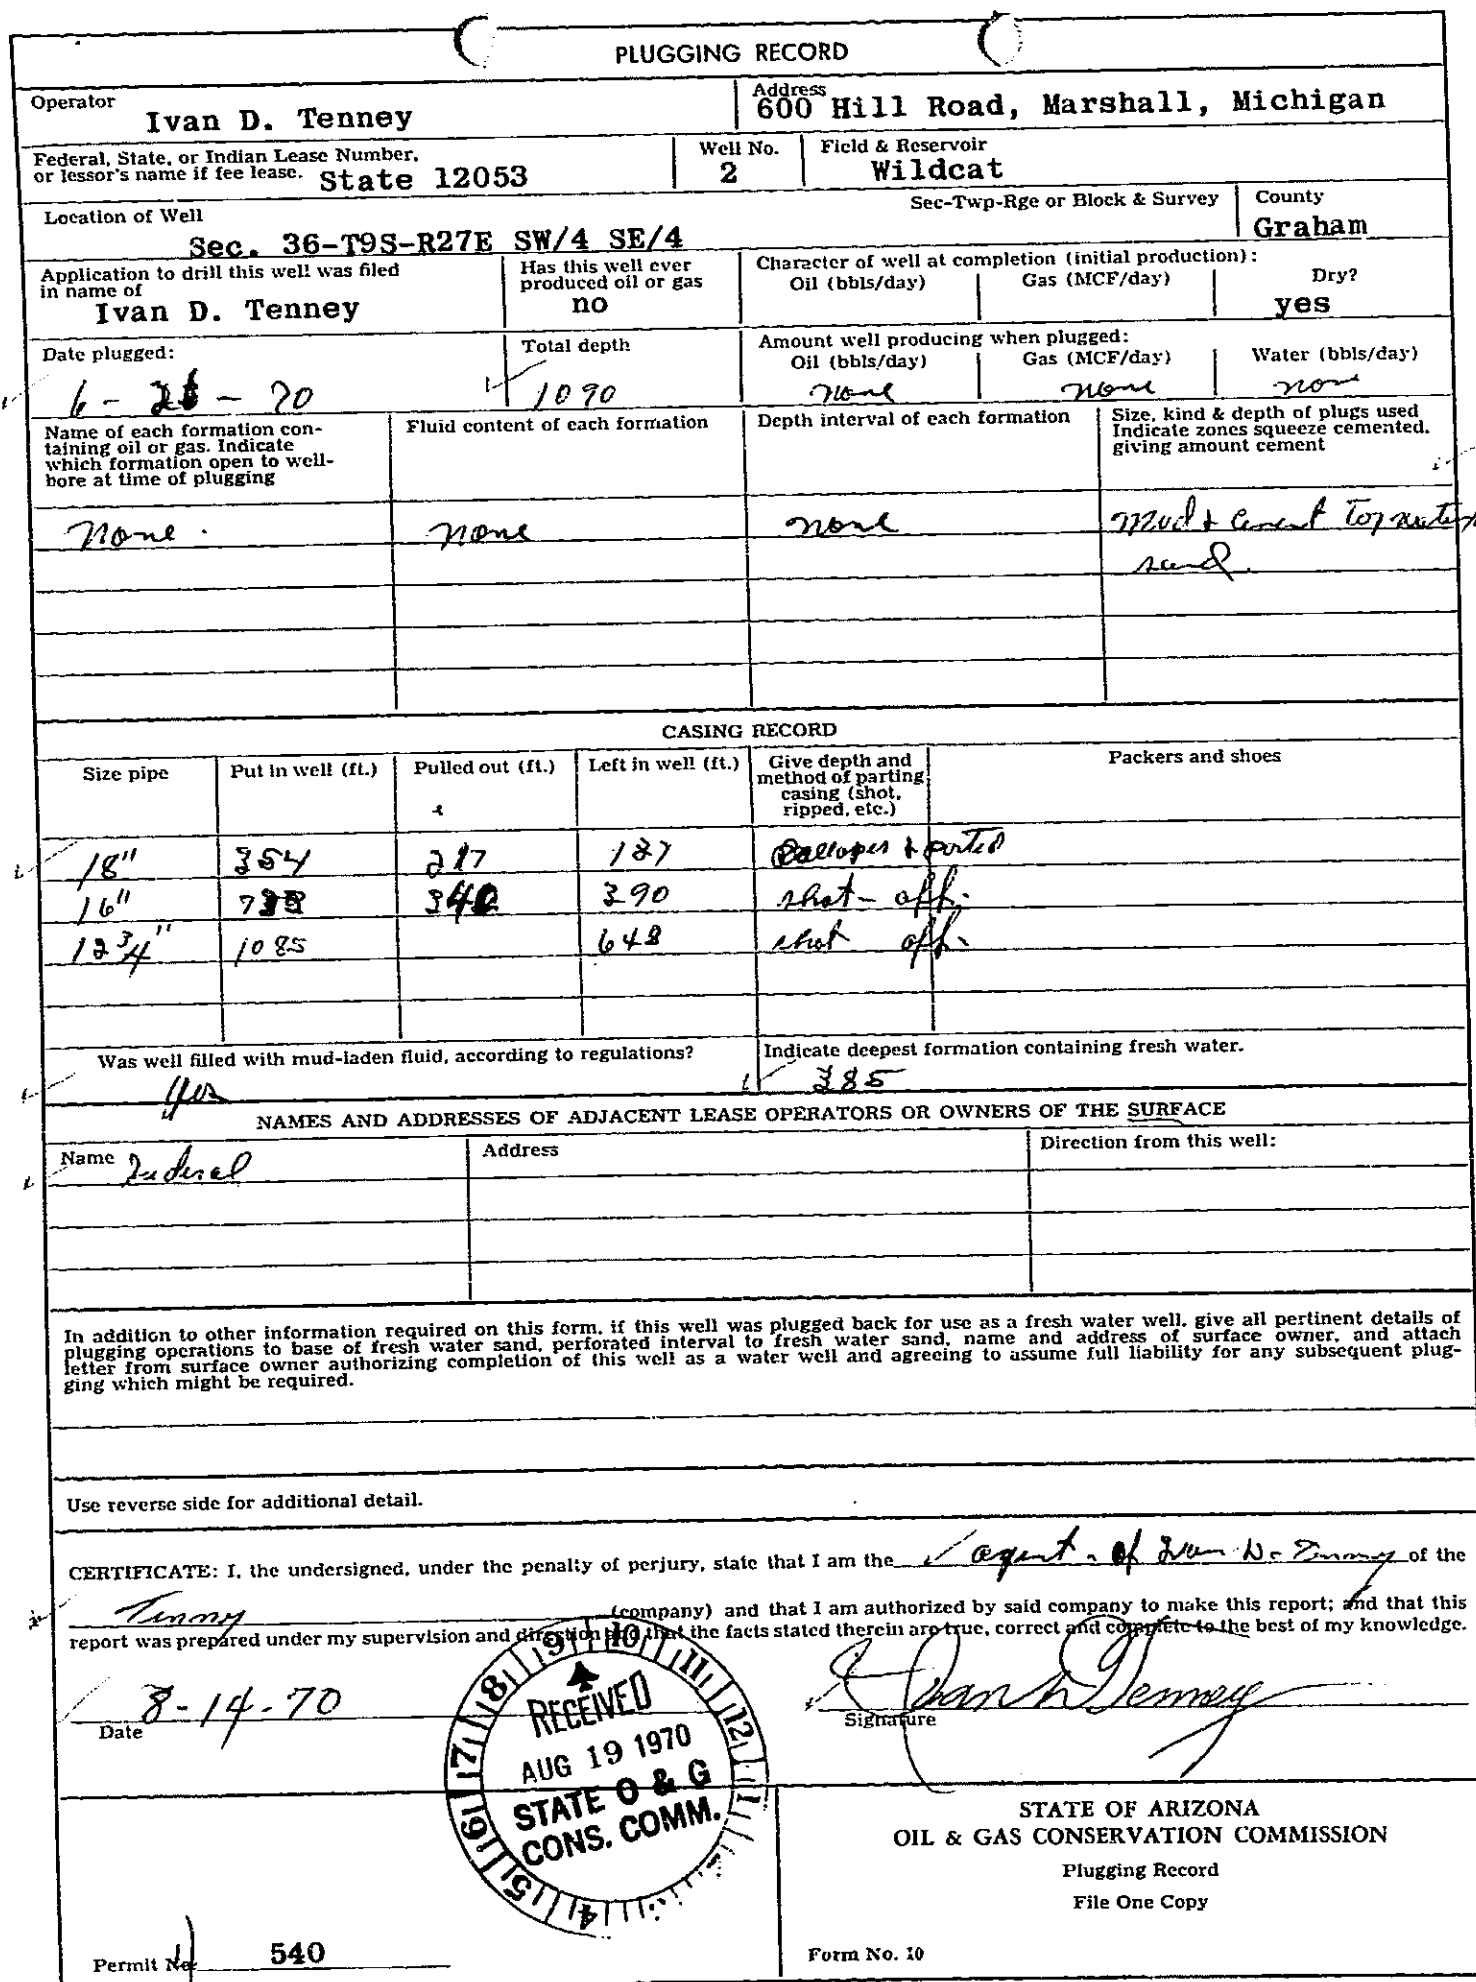 PLUGGING RECORD
Operator
Ivan D. Tenney
Address
600 Hill Road, Marshall, Michigan
Federal, State, or Indian Lease Number,
or lessor's name if fee lease. State 12053
Well No.
2
Field & Reservoir
Wildcat
Location of Well
Sec-Twp-Rge or Block & Survey
Sec. 36-T9S-R27E SW/4 SE/4
County
Graham
Application to drill this well was filed
in name of
Ivan D. Tenney
Has this well ever
produced oil or gas
no
Character of well at completion (initial production):
Oil (bbls/day) Gas (MCF/day) Dry?
yes
Date plugged:
6 - - 70
Total depth
1090
Amount well producing when plugged:
Oil (bbls/day) Gas (MCF/day) Water (bbls/day)
none none none
Name of each formation con-
taining oil or gas. Indicate
which formation open to well-
bore at time of plugging
Fluid content of each formation
Depth interval of each formation
Size, kind & depth of plugs used
Indicate zones squeeze cemented,
giving amount cement
none. none none mud & cement Top
sand.
CASING RECORD
Size pipe Put in well (ft.) Pulled out (ft.) Left in well (ft.) Give depth and
method of parting
casing (shot,
ripped, etc.)
Packers and shoes
18" 354 217 137 & parted
16" 390 shot - off.
12 3/4" 1085 648 shot off.
Was well filled with mud-laden fluid, according to regulations?
yes
Indicate deepest formation containing fresh water.
385
NAMES AND ADDRESSES OF ADJACENT LEASE OPERATORS OR OWNERS OF THE SURFACE
Name Federal
Address
Direction from this well:
In addition to other information required on this form, if this well was plugged back for use as a fresh water well, give all pertinent details of
plugging operations to base of fresh water sand, perforated interval to fresh water sand, name and address of surface owner, and attach
letter from surface owner authorizing completion of this well as a water well and agreeing to assume full liability for any subsequent plug-
ging which might be required.
Use reverse side for additional detail.
CERTIFICATE: I, the undersigned, under the penalty of perjury, state that I am the agent - of Ivan D. Tenney of the
Tenney (company) and that I am authorized by said company to make this report; and that this
report was prepared under my supervision and direction and that the facts stated therein are true, correct and complete to the best of my knowledge.
8-14-70
Date
Signature
4 5 6 7 8 9 10 11 12 1
RECEIVED
AUG 19 1970
STATE O & G
CONS. COMM.
STATE OF ARIZONA
OIL & GAS CONSERVATION COMMISSION
Plugging Record
File One Copy
Permit No. 540
Form No. 10